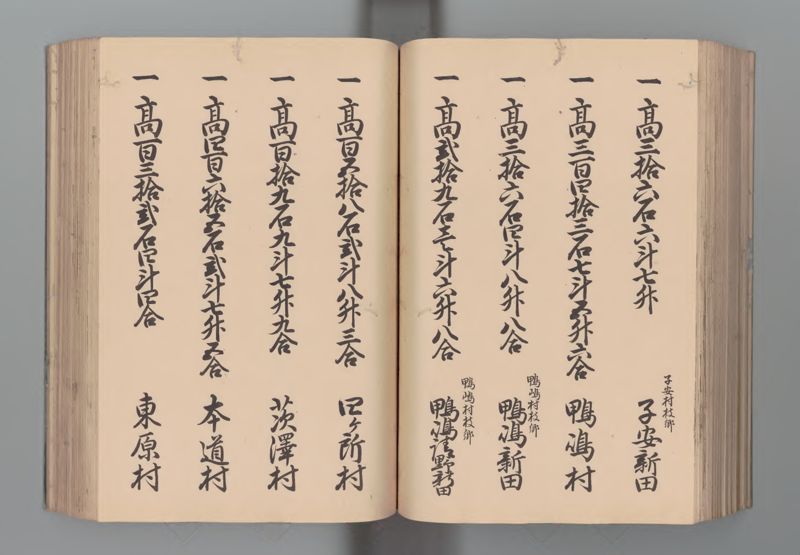 一高三拾六石六斗七升
子安村枝郷
子安新田
一高三百四拾三石七斗五升六合
鴨嶋村
一高三拾六石四斗八升八合
鴨嶋村枝郷
鴨嶋新田
一高弐拾九石壱斗六升八合
鴨嶋村枝郷
鴨嶋野新田
一高百五拾八石弐斗八升三合
四ヶ所村
一高百拾九石九斗七升九合
茨澤村
一高四百六拾五石弐斗七升五合
本道村
一高百三拾弐石四斗四合
東原村